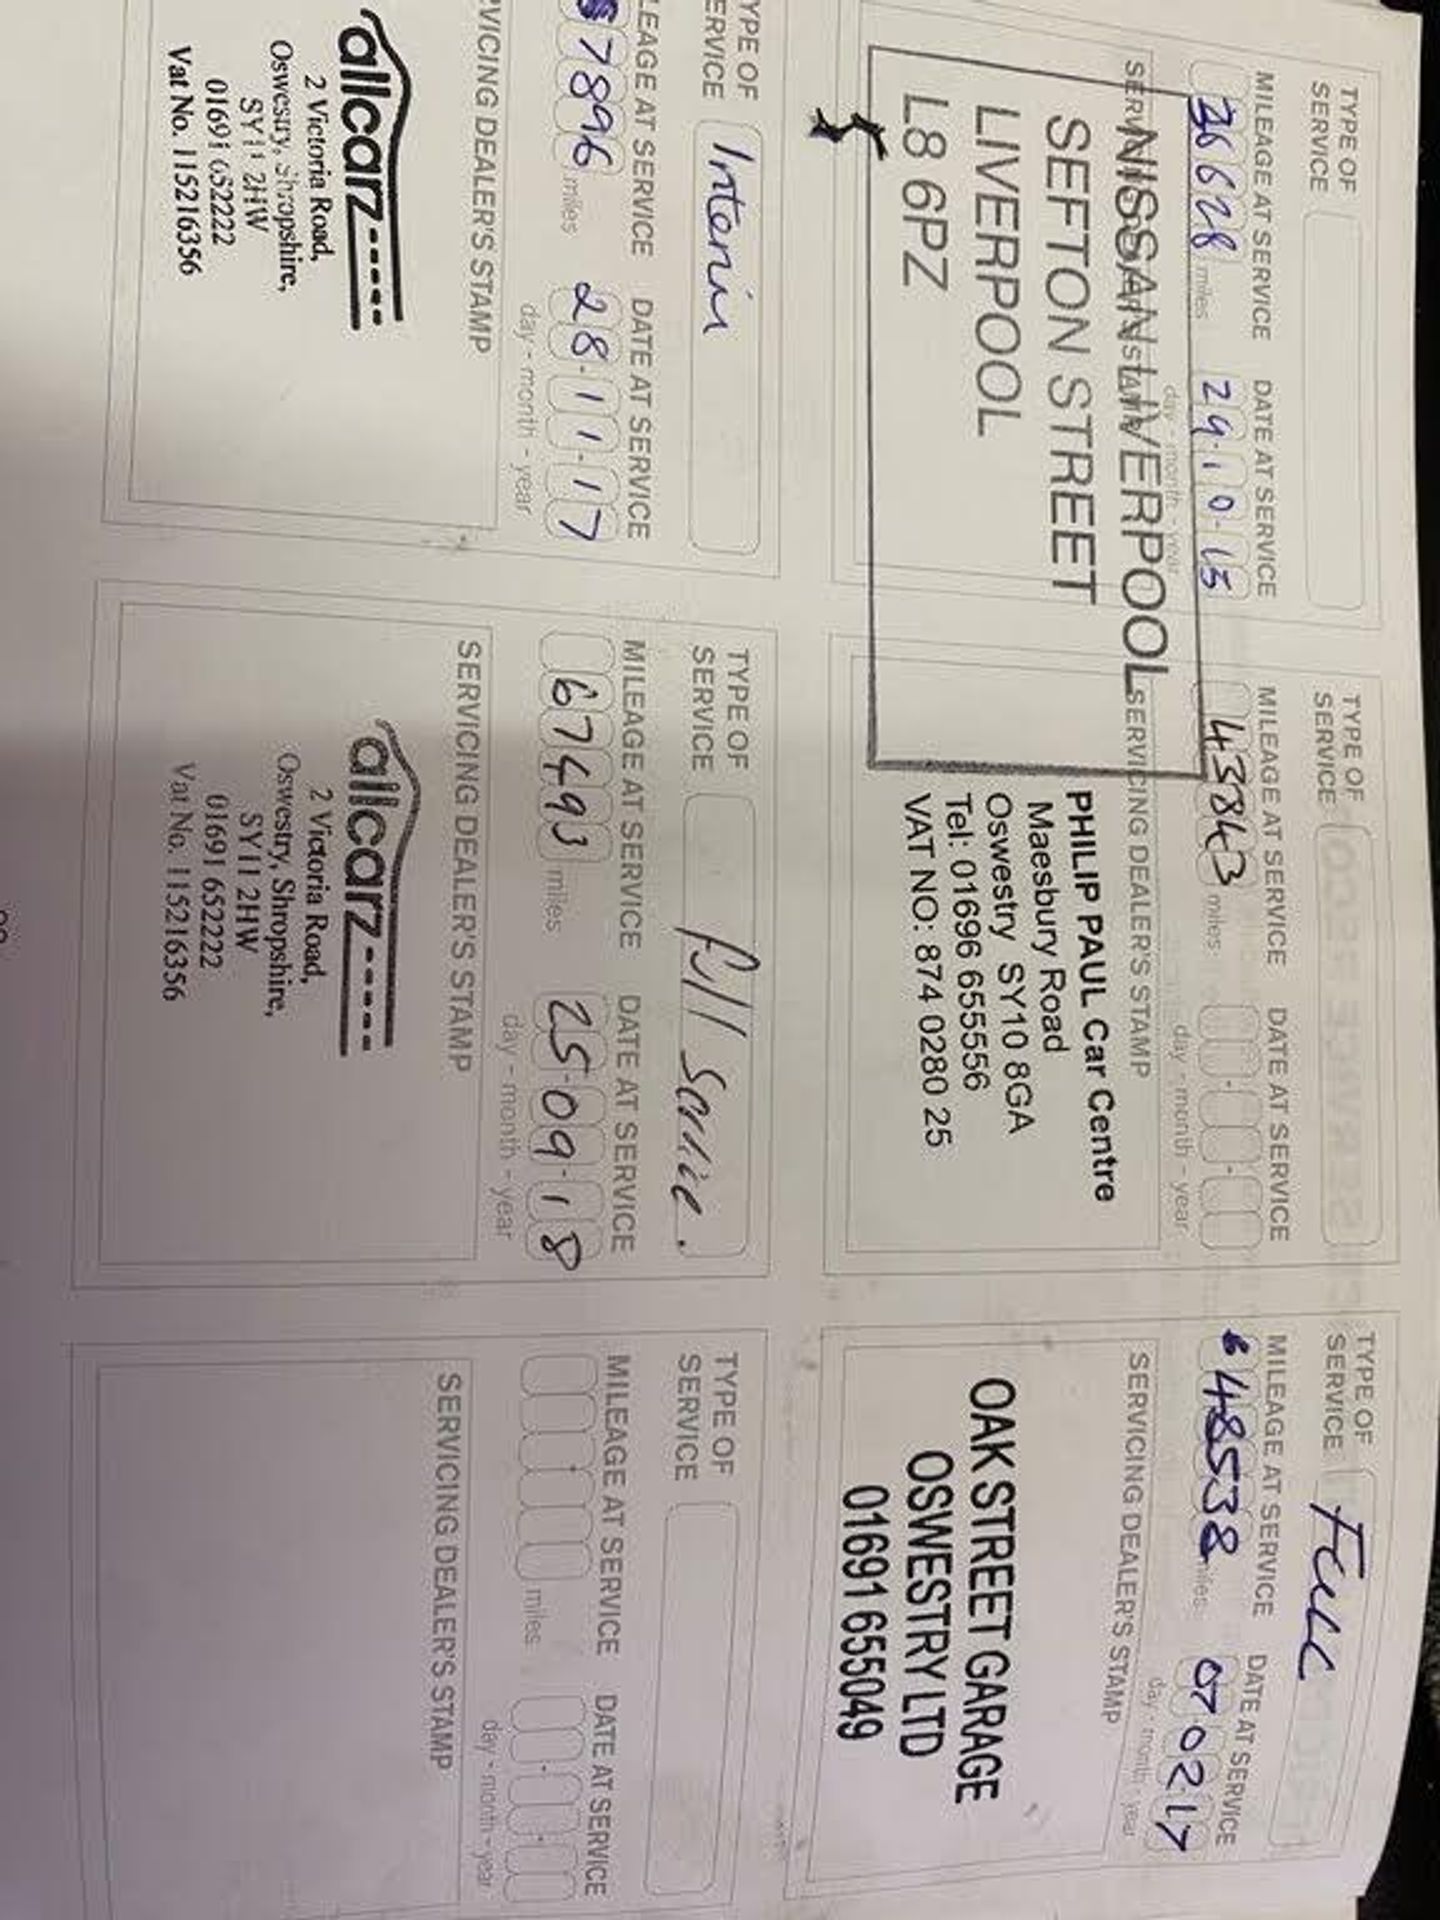 TYPE OF
SERVICE
MILEAGE AT SERVICE DATE AT SERVICE
36628 miles 29·10·15
day - month - year
SERVICING DEALER'S STAMP
NISSAN LIVERPOOL
SEFTON STREET
LIVERPOOL
L8 6PZ
TYPE OF
SERVICE
MILEAGE AT SERVICE DATE AT SERVICE
43843 miles
day - month - year
SERVICING DEALER'S STAMP
PHILIP PAUL Car Centre
Maesbury Road
Oswestry SY10 8GA
Tel: 01696 655556
VAT NO: 874 0280 25
TYPE OF
SERVICE Full
MILEAGE AT SERVICE DATE AT SERVICE
48538 miles 07 02 17
day - month - year
SERVICING DEALER'S STAMP
OAK STREET GARAGE
OSWESTRY LTD
01691 655049
YPE OF
ERVICE Interim
LEAGE AT SERVICE DATE AT SERVICE
57896 miles 28·11·17
day - month - year
VICING DEALER'S STAMP
allcarz
2 Victoria Road,
Oswestry, Shropshire,
SY11 2HW
01691 652222
Vat No. 115216356
TYPE OF
SERVICE Full Service.
MILEAGE AT SERVICE DATE AT SERVICE
67493 miles 25·09·18
day - month - year
SERVICING DEALER'S STAMP
allcarz
2 Victoria Road,
Oswestry, Shropshire,
SY11 2HW
01691 652222
Vat No. 115216356
TYPE OF
SERVICE
MILEAGE AT SERVICE DATE AT SERVICE
miles
day - month - year
SERVICING DEALER'S STAMP